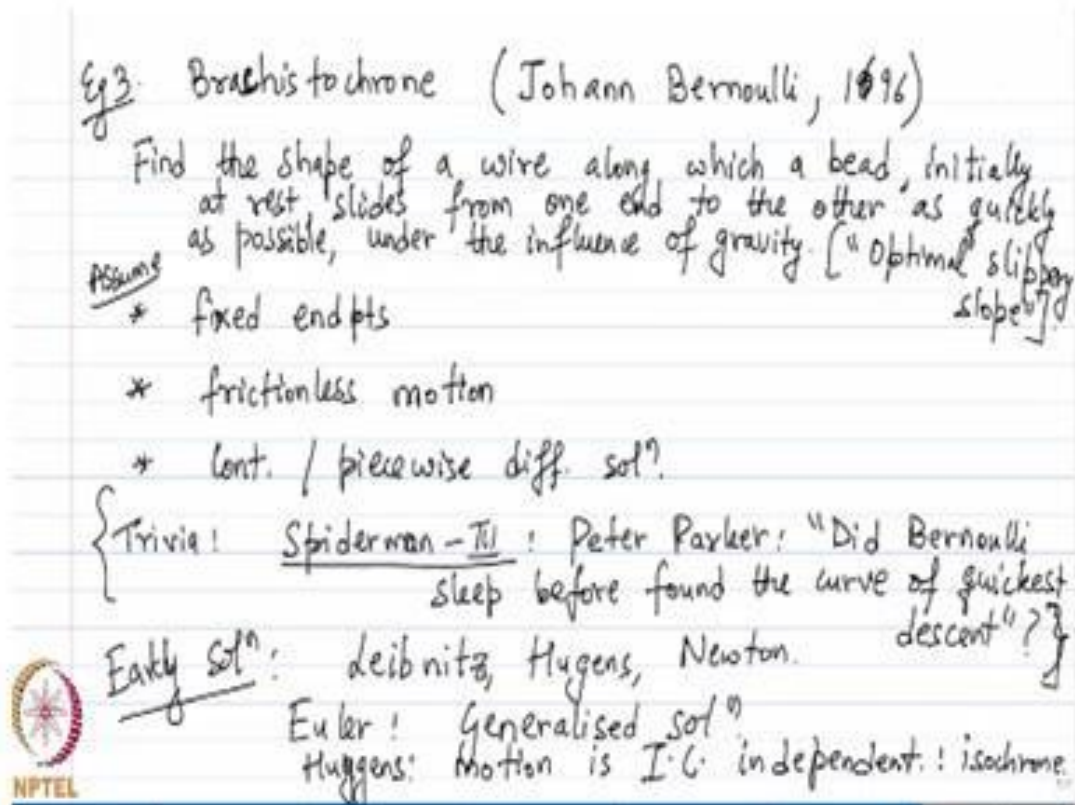 Eg 3. Brachistochrone (Johann Bernoulli, 1696)
Find the shape of a wire along which a bead, initially
at rest, slides from one end to the other as quickly
as possible, under the influence of gravity. ["Optimal slippery
slope"].
Assume
* fixed end pts
* frictionless motion
* Cont. / piecewise diff. solⁿ.
{Trivia: Spiderman-III : Peter Parker: "Did Bernoulli
sleep before found the curve of quickest
descent"?}
Early solⁿ: Leibnitz, Hugens, Newton.
Euler: Generalised solⁿ
Huggens: Motion is I.C. independent.: isochrone
NPTEL